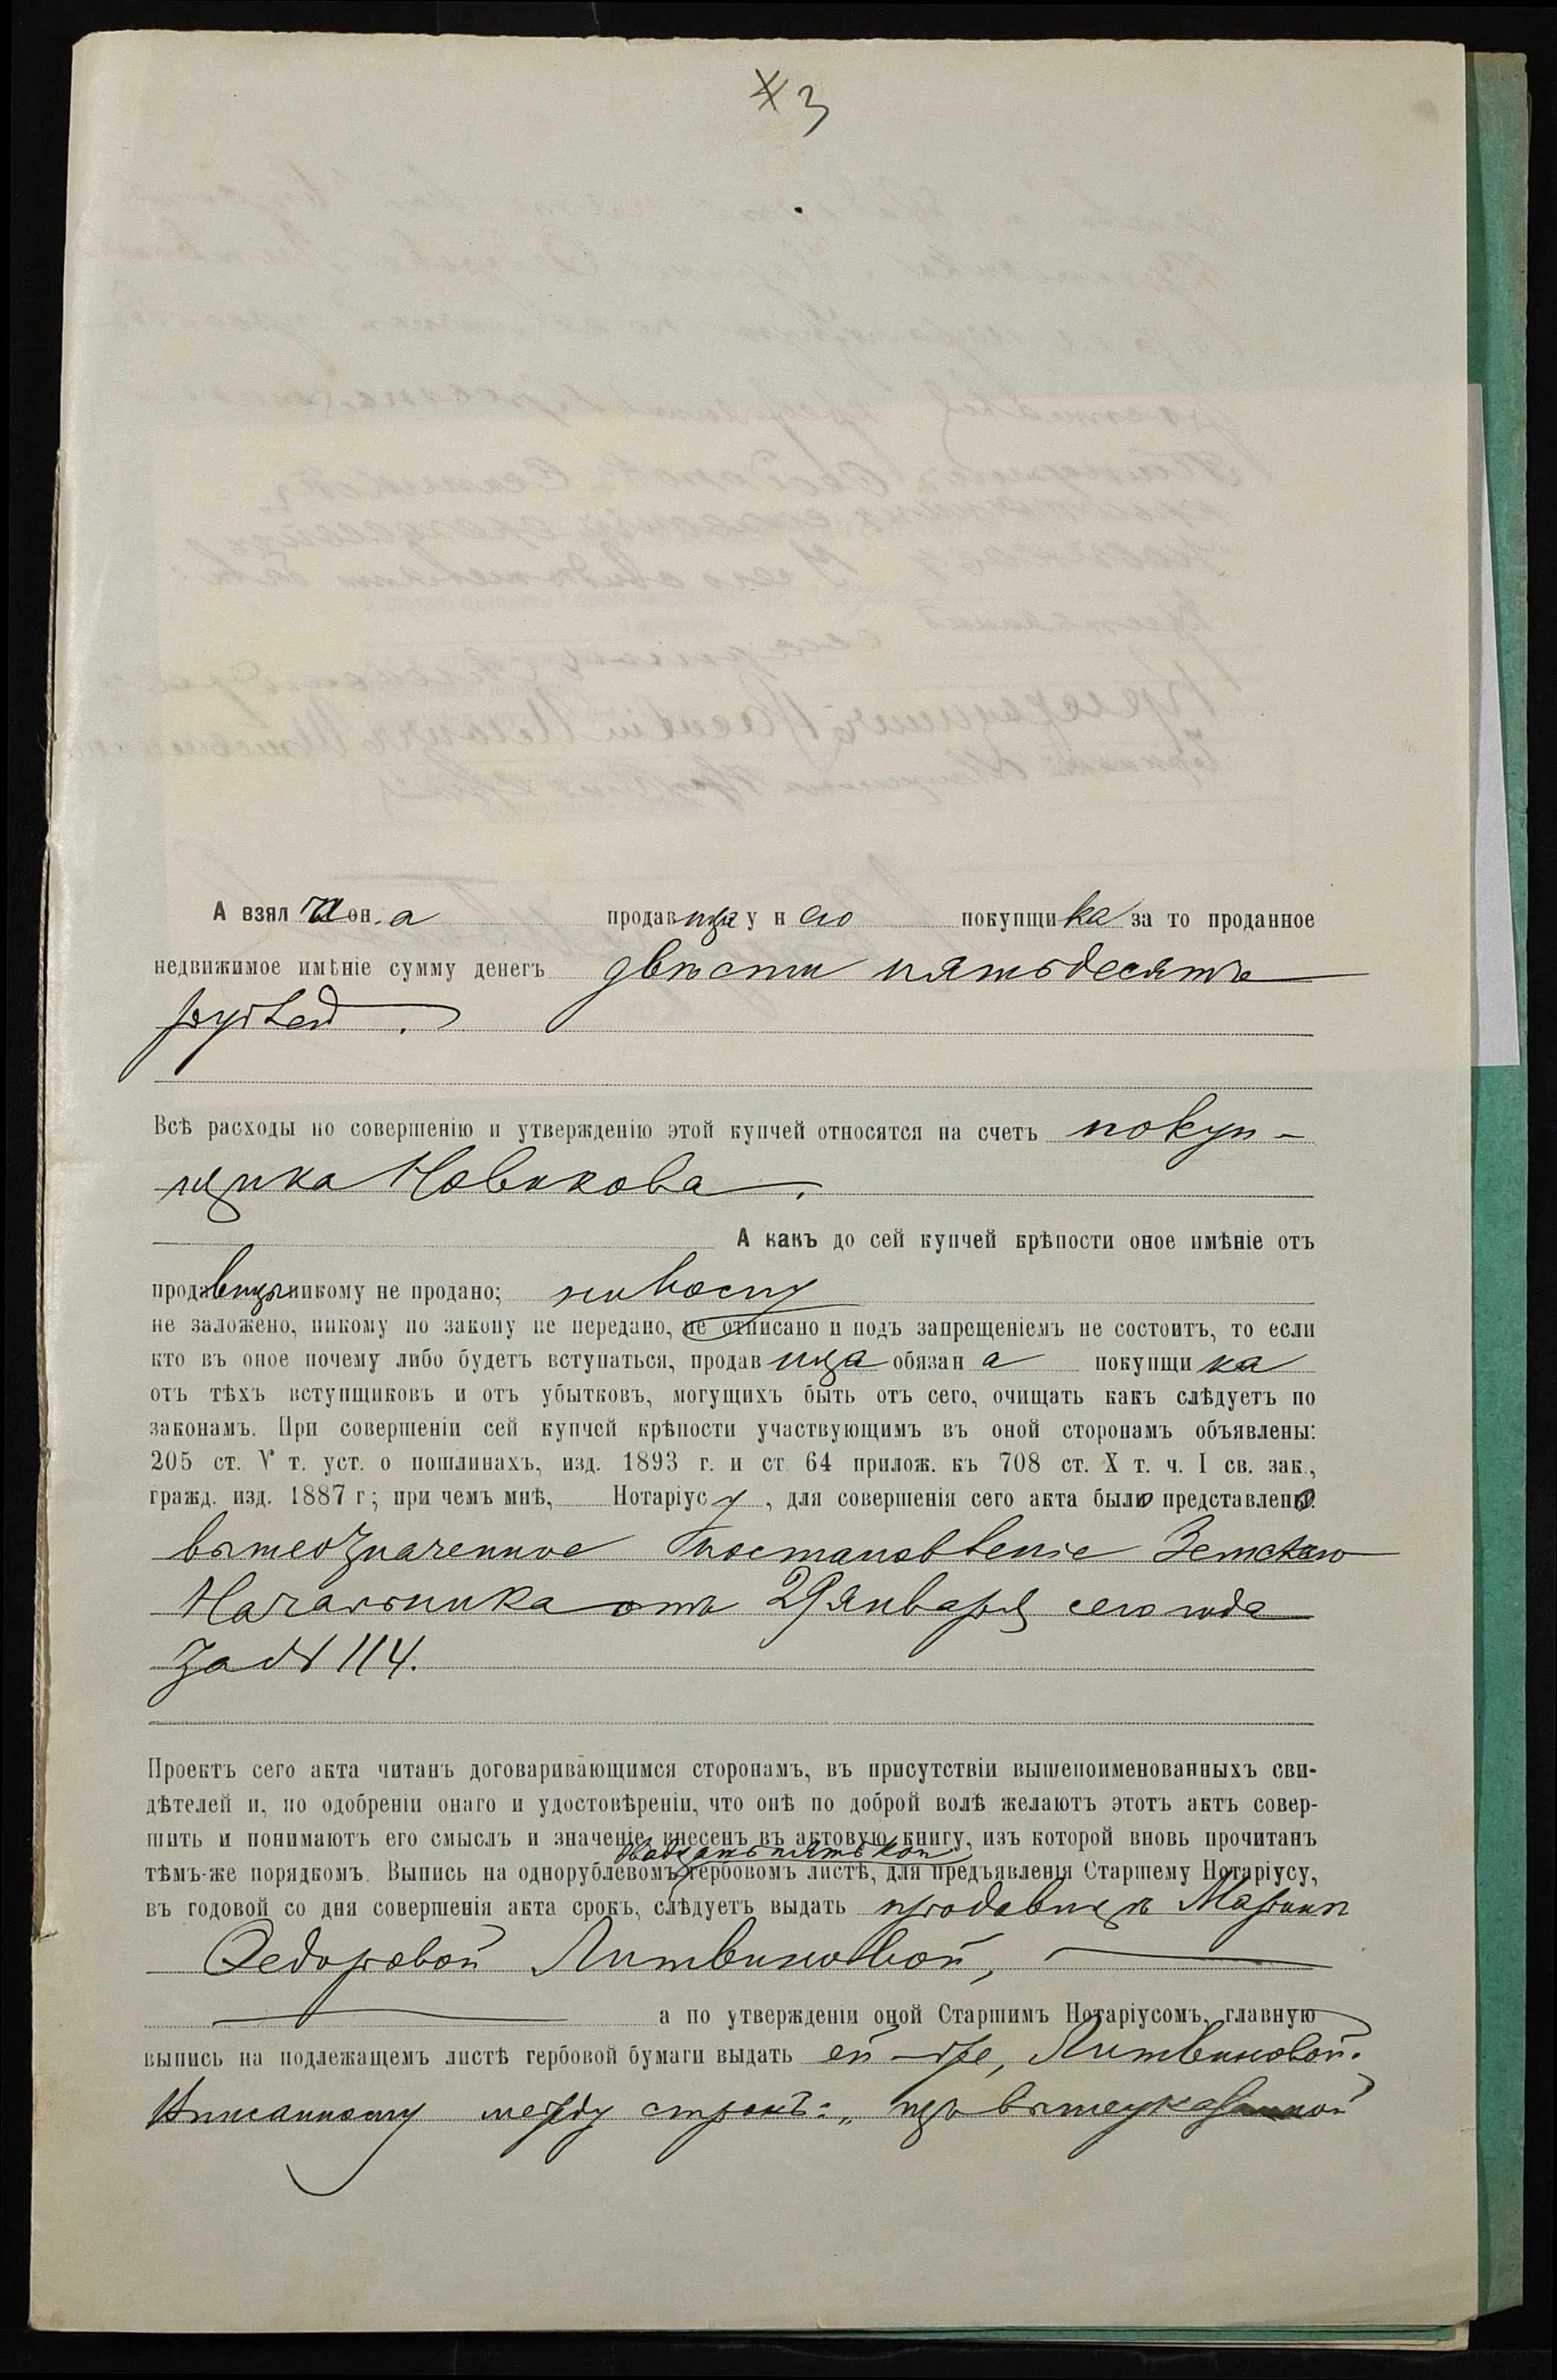 3
А взяла она продавица у него покупщика за то проданное
недвижимое имѣніе сумму денегъ двѣсти пятьдесятъ
рублей.
Всѣ расходы по совершенію и утвержденію этой купчей относятся на счетъ покуп-
щика Новикова.
А какъ до сей купчей крѣпости оное имѣніе отъ
продавицы никому не продано;
не заложено, никому по закону не передано, не отписано и подъ запрещеніемъ не состоитъ, то если
кто въ оное почему либо будетъ вступаться, продавица обязана покупщика
отъ тѣхъ вступщиковъ и отъ убытковъ, могущихъ быть отъ сего, очищать какъ слѣдуетъ по
законамъ. При совершеніи сей купчей крѣпости участвующимъ въ оной сторонамъ объявлены:
205 ст. V т. уст. о пошлинахъ, изд. 1893 г. и ст. 64 прилож. къ 708 ст. X т. ч. I св. зак.,
гражд. изд. 1887 г; при чемъ мнѣ, Нотаріусу, для совершенія сего акта было представлено
вышеозначенное постановленіе Земскаго
Начальника отъ 29 января сего года
за № 114.
Проектъ сего акта читанъ договаривающимся сторонамъ, въ присутствіи вышепоименованныхъ сви-
дѣтелей и, по одобреніи онаго и удостовѣреніи, что онѣ по доброй волѣ желаютъ этотъ актъ совер-
шить и понимаютъ его смыслъ и значеніе внесенъ въ актовую книгу, изъ которой вновь прочитанъ
двадцать пять коп
тѣмъ-же порядкомъ. Выпись на однорублевомъ гербовомъ листѣ, для предъявленія Старшему Нотаріусу,
въ годовой со дня совершенія акта срокъ, слѣдуетъ выдать продавицѣ Маріи
Федоровой Литвиновой,
а по утвержденіи оной Старшимъ Нотаріусомъ, главную
выпись на подлежащемъ листѣ гербовой бумаги выдать ей-же, Литвиновой.
Вписанному между строкъ: „ изъ вышеуказанной